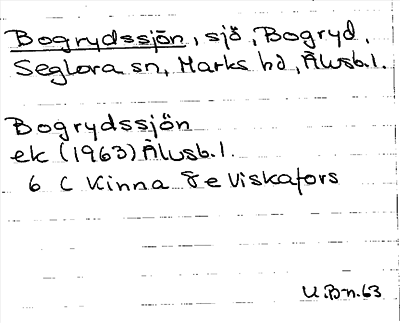 Bogrydssjön, sjö, Bogryd,
Seglora sn, Marks hd, Älvsb. l.
Bogrydssjön
ek (1963) Älvsb. l.
6 C Kinna 8 e Viskafors
U.B-n. 63